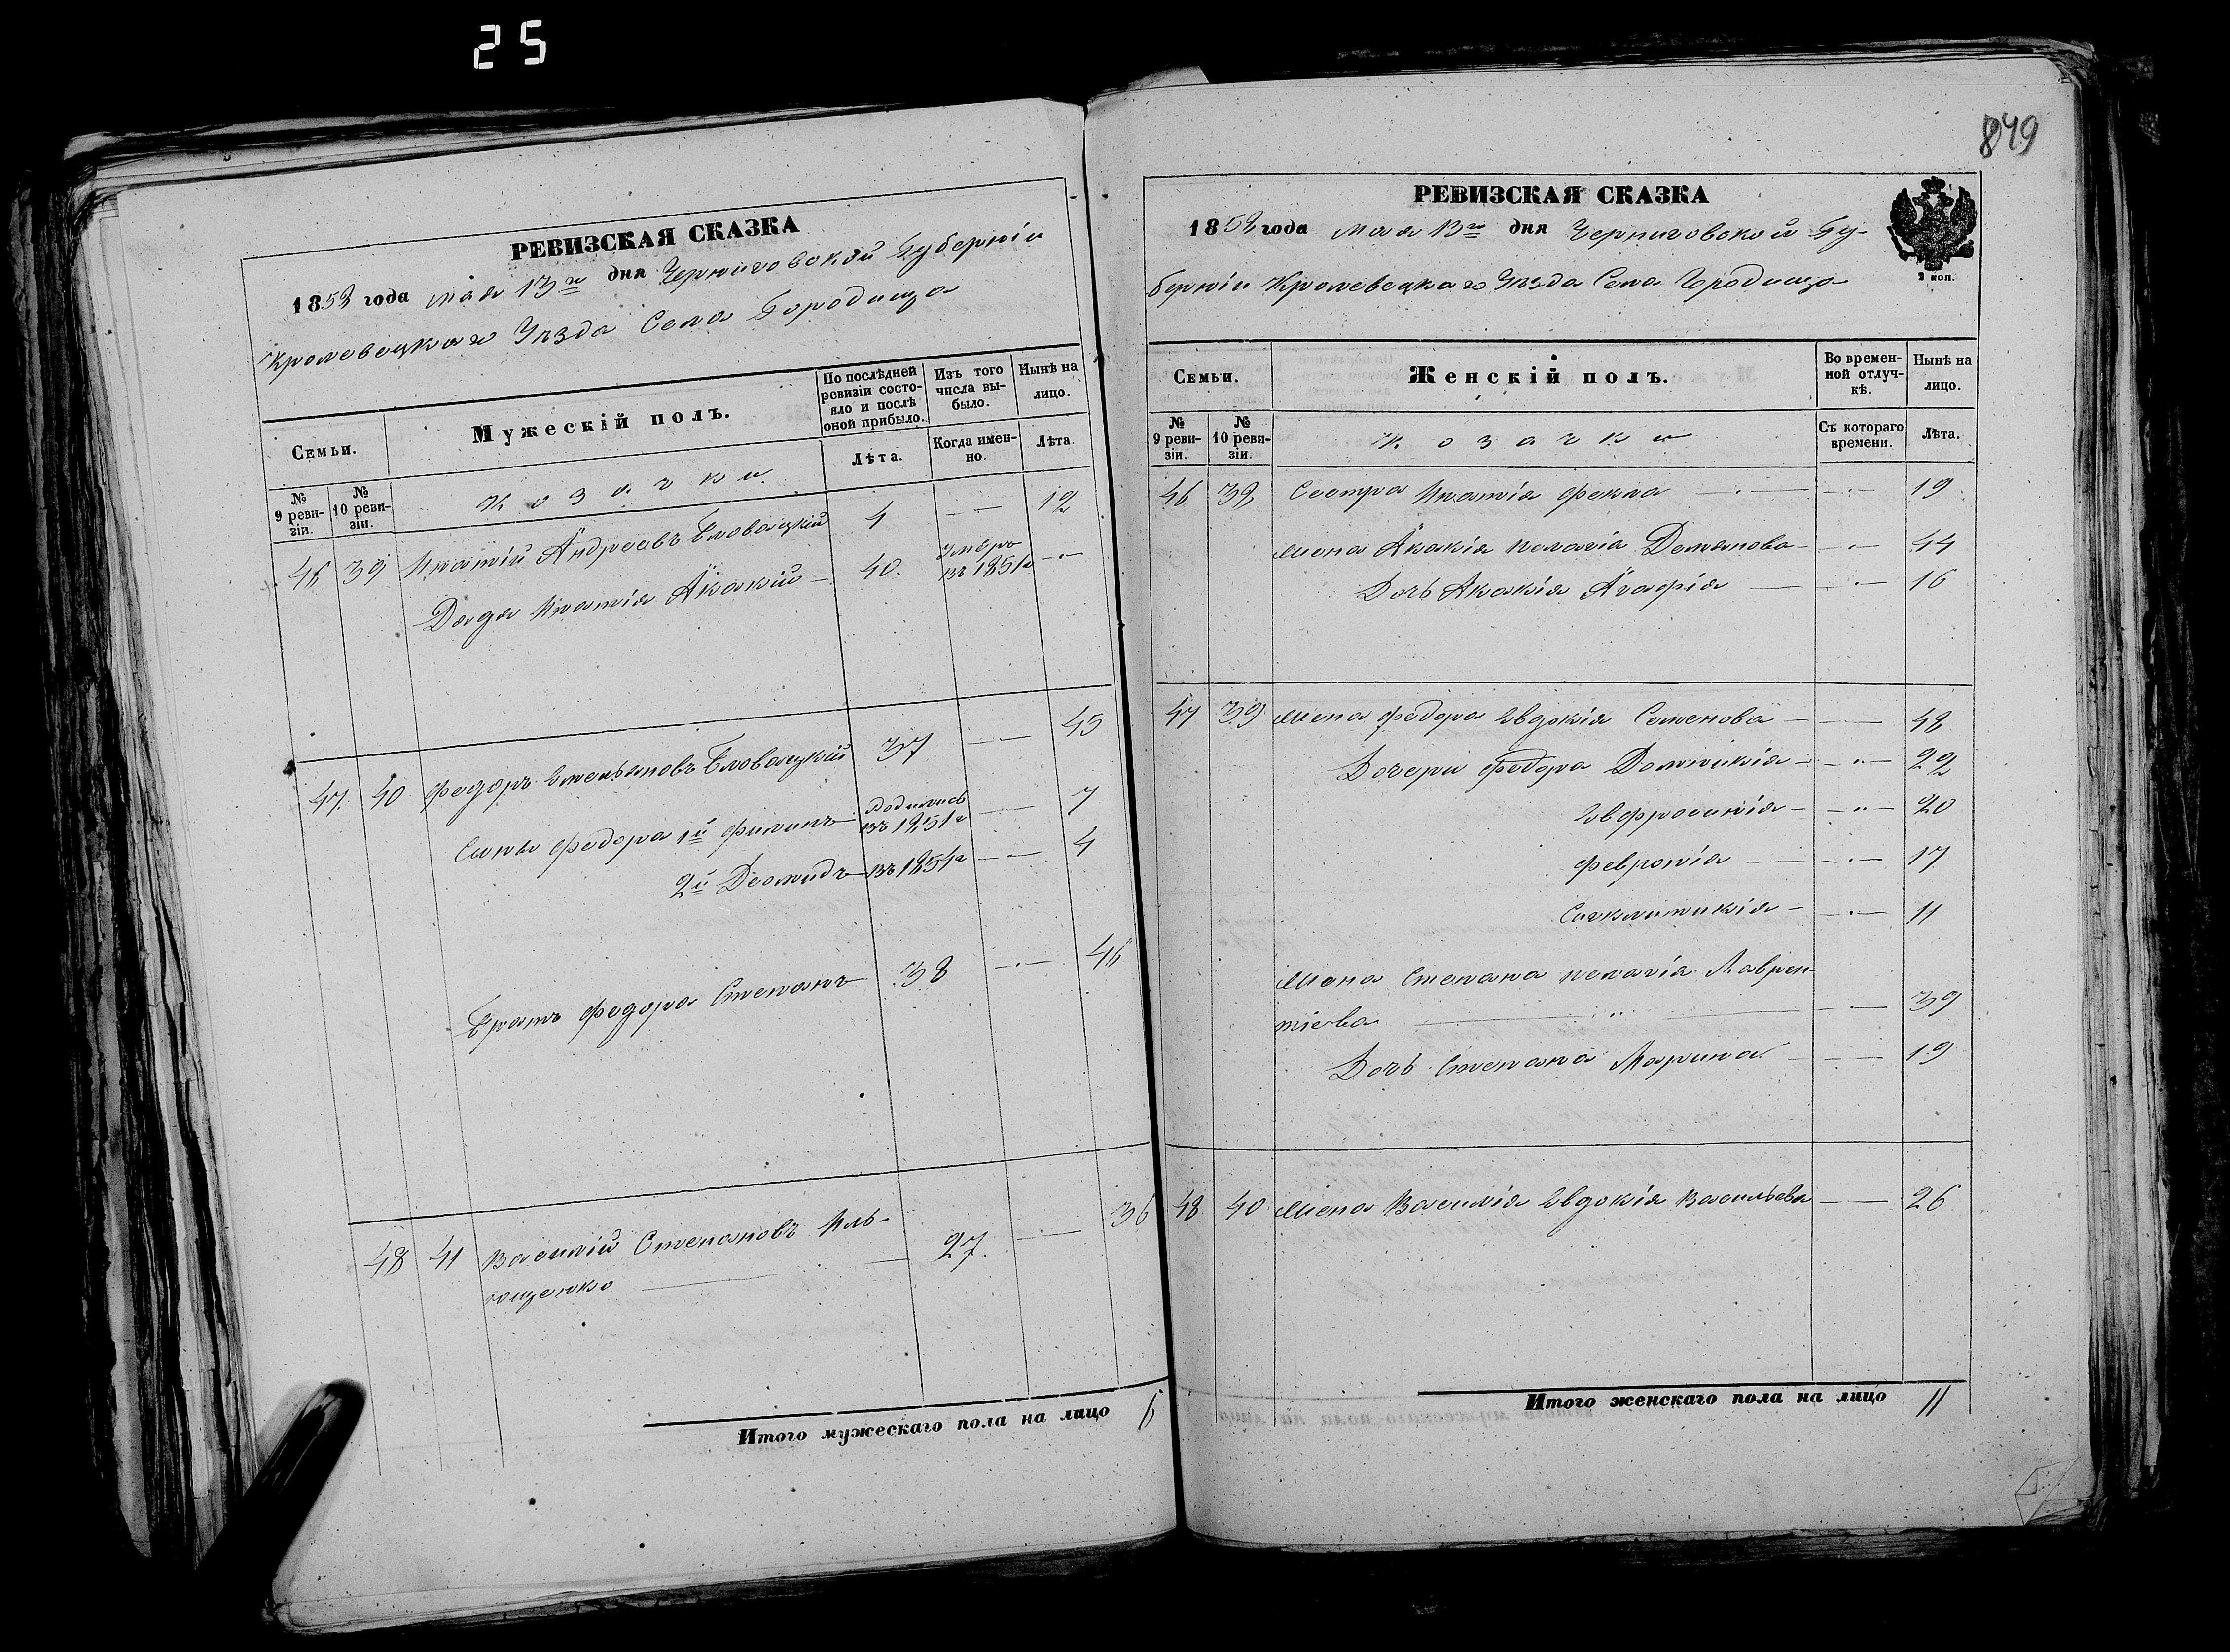 25
879
РЕВИЗСКАЯ СКАЗКА
1858 года мая 13го дня Черниговской Губерніи
Кролевецкаго Уѣзда Села Городища
Семьи.
Мужескій полъ.
По послѣдней ревизіи состояло и послѣ оной прибыло.
Изъ того числа выбыло.
Нынѣ на лицо.
№ 9 ревизіи.
№ 10 ревизіи.
Козачки
Лѣта.
Когда именно.
Лѣта.
46 39 Игнатій Андреевъ 4 — — 12
Дядя Игнатія Акакій — 40. умеръ въ 1851г — —
47. 40 Федоръ Емельяновъ 37 — — 45
Сыны Федора 1й Филипъ родились въ 1851г — — 7
2й Деомидъ — въ 1854г — — 4
Братъ Федора Степанъ 38 — — 46
48 41 Василій Степановъ Иль-
ющенко — 27. — — 36
Итого мужескаго пола на лицо 6
РЕВИЗСКАЯ СКАЗКА
1858 года мая 13го дня Черниговской Гу-
берніи Кролевецкаго Уѣзда Села Городища
2 коп.
Семьи.
Женскій полъ.
Во временной отлучкѣ.
Нынѣ на лицо.
№ 9 ревизіи.
№ 10 ревизіи.
Козачки
Съ котораго времени.
Лѣта.
46 39 Сестра Игнатія Фекла — — 19
Жена Акакія Пелагія Демянова — — 44
Дочь Акакія Агафія — — 16
47 39 Жена Федора Евдокія Семенова — — 48
Дочери Федора Домникія — — 22
Евфросинія — — 20
Февронія — — 17
Сигклитикія — — 11
Жена Степана Пелагія Лаврен-
тіева — — 39
Дочь Степана Марина — — 19
48 40 Жена Василія Евдокія Васильева — — 26
Итого женскаго пола на лицо 11